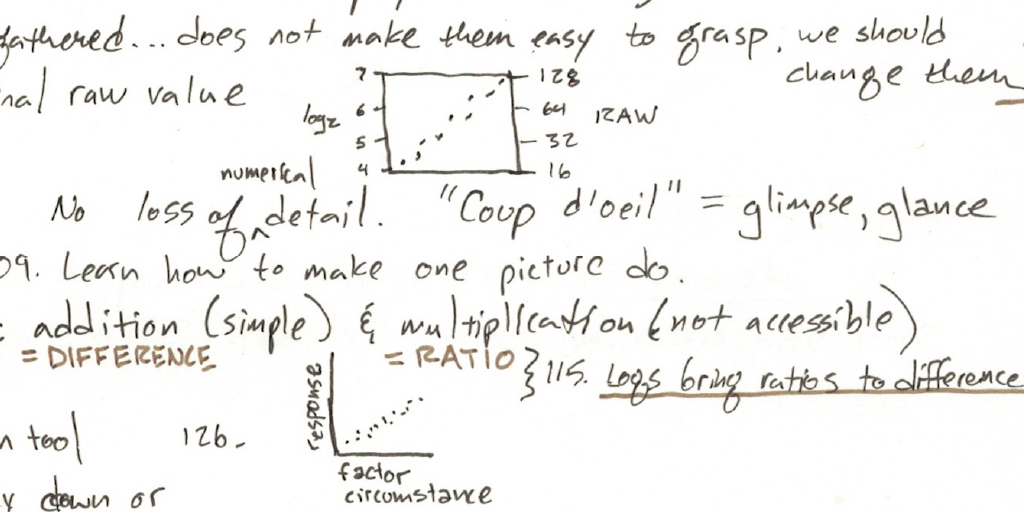 gathered... does not make them easy to grasp, we should
change them
nal raw value
7 128
log2 6 64 RAW
5 32
4 16
numerical
No loss of ^ detail. "Coup d'oeil" = glimpse, glance
09. Learn how to make one picture do.
: addition (simple) & multiplication (not accessible)
= DIFFERENCE = RATIO } 115. Logs bring ratios to difference
response
n tool 126-
factor
circumstance
y down or